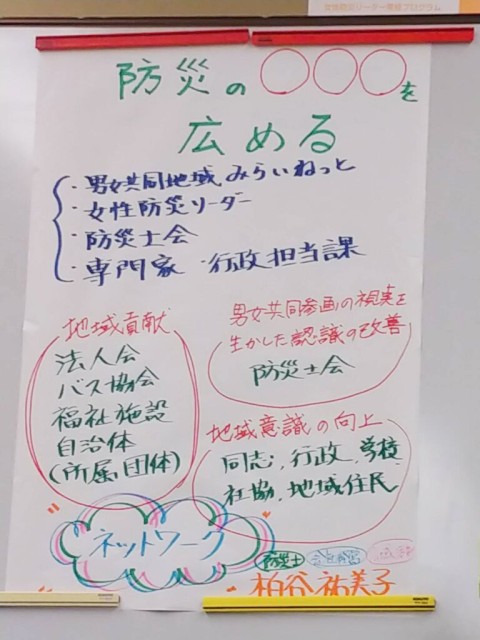 女性防災リーダー養成プログラム
防災の○○○を
広める
・男女共同地域みらいねっと
・女性防災リーダー
・防災士会
・専門家・行政担当課
地域貢献
法人会
バス協会
福祉施設
自治体
(所属団体)
男女共同参画の視実を
生かした認識の改善
防災士会
地域意識の向上
同志,行政,学校,
社協,地域住民
ネットワーク
防災士
柏谷祐美子